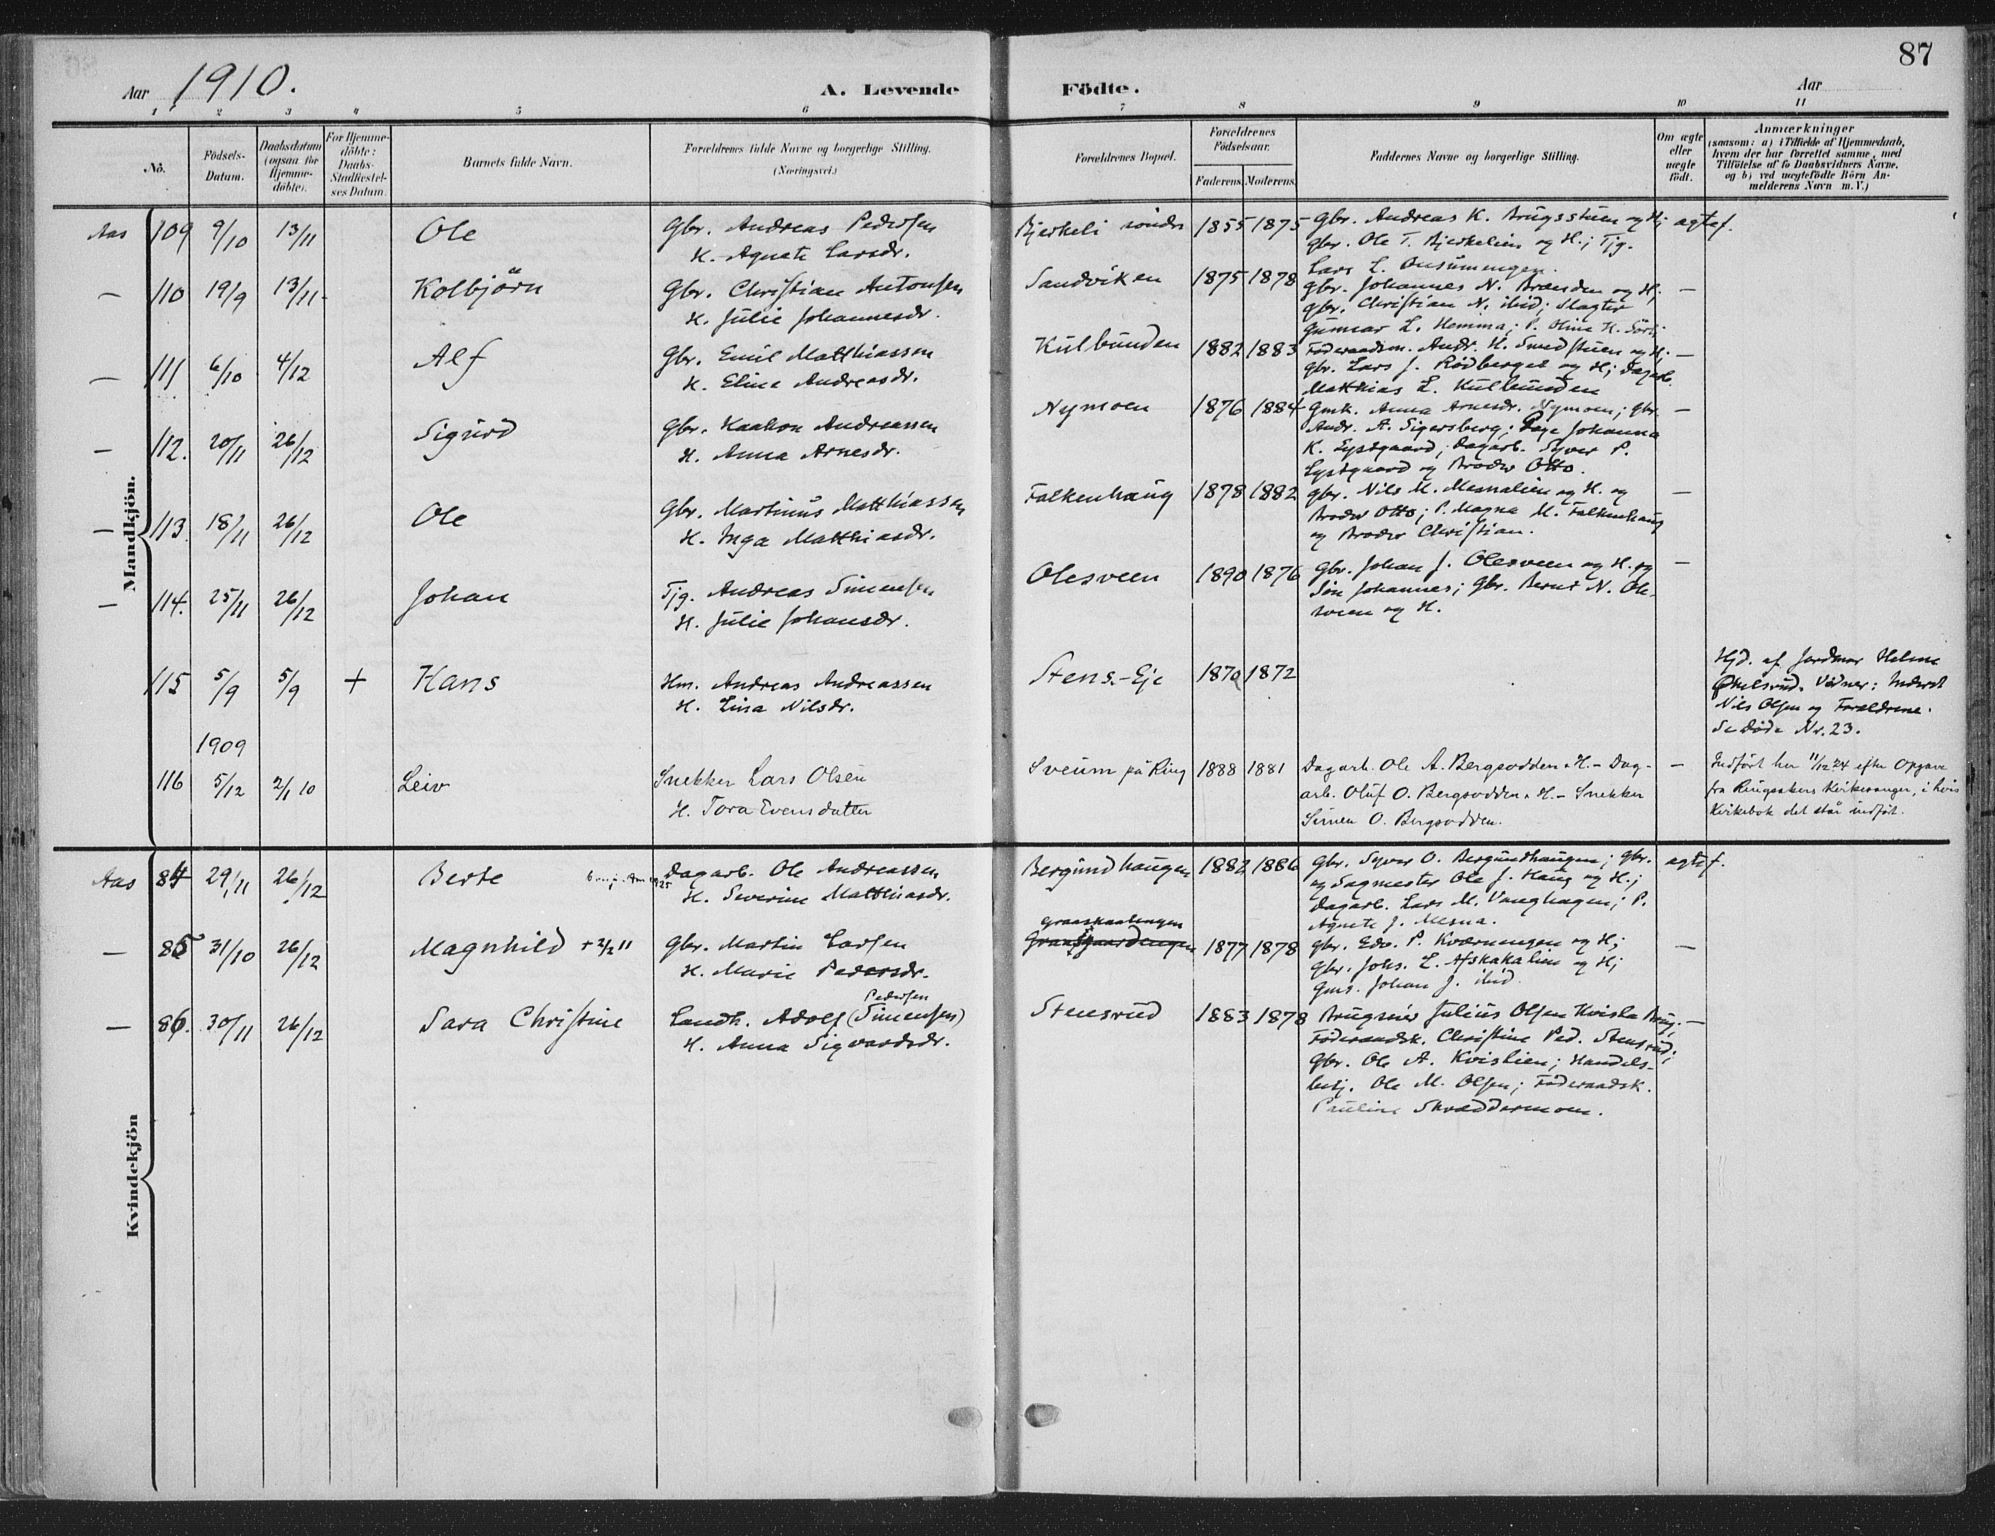 87
Aar 1910. A. Levende Födte. Aar
1 2 3 4 5 6 7 8 9 10 11
No. Födsels-Datum. Daabsdatum (ogsaa for Hjemmedöbte). For Hjemmedöbte: Daabs-Stadfæstelses Datum. Barnets fulde Navn. Forældrenes fulde Navne og borgerlige Stilling. (Næringsvei.) Forældrenes Bopæl. Forældrenes Födselsaar. Faderens. Moderens. Faddernes Navne og borgerlige Stilling. Om ægte eller uægte födt. Anmærkninger (saasom: a) i Tilfælde af Hjemmedaab, hvem der har forrettet samme, med Tilföielse af to Daabsvidners Navne. og b) ved uægtefödte Börn Anmelderens Navn m. V.)
Mandkjön.
Aas 109 9/10 13/11 Ole Gbr. Andreas Pedersen Bjerkeli söndr 1855 1875 Gbr. Andreas K. Brugsstuen og H; ægtef.
H. Agnete Larsdr. gbr. Ole T. Bjerkelien og H.; Tjg.
Lars L.
— 110 19/9 13/11 Kolbjörn Gbr. Christian Antonsen Sandviken 1875 1878 gbr. Johannes N. Brænden og H; —
H. Julie Johannesdr. gbr. Christian N. ibid; Slagter
Gunnar L. Hemma; P. Oline H.
— 111 6/10 4/12 Alf Gbr. Emil Matthiassen Kulbunden 1882 1883 Föderaadsm. Andr. H. Smedstuen og H; —
H. Eline Andreasdr. gbr. Lars J. Rødberget og H; Dagarb.
Matthias L. Kulbunden
— 112. 20/11 26/12 Sigurd Gbr. Haakon Andreassen Nymoen 1876 1884 Gmk. Anna Arnesdr. Nymoen; gbr. —
H. Anna Arnesdr. Andr. A. Sigersberg; Pige Johanna
K. Lystgaard; Dagarb. Syver P.
Lystgaard og Broder Otto.
— 113. 18/11 26/12 Ole Gbr. Martinus Matthiassen Falkenhaug 1878 1882 gbr. Nils M. Mesnalien og H. og —
H. Inga Matthiasdr. Broder Otto; P. Magna M. Falkenhaug
og Broder Christian.
— 114. 25/11 26/12 Johan Tjg. Andreas Simensen Olesveen 1890 1876 gbr. Johan J. Olesveen og H. og —
H. Julie Johansdr. Sön Johannes; gbr. Bernt N. Ole-
sveen og H.
115 5/9 5/9 + Hans Hm. Andreas Andreassen Stens-Eje 1870 1872 Hjd. af Jordmor Helene
H. Lina Nilsdr. Vidner: Inderst
Nils Olsen og Forældrene.
Se Døde Nr. 23.
1909
116 5/12 2/1 10 Leiv Snekker Lars Olsen Sveum på Ring 1888 1881 Dagarb. Ole A. Bergsodden & H. – Dag- — Indført her 11/12 24 efter Opgave
H. Tora Evensdatter arb. Oluf O. Bergsodden & H. – Snekker fra Ringsakers Kirkesanger, i hvis
Simen O. Bergsodden. Kirkebok det står indført.
Kvindekjön
Aas 84 29/11 26/12 Berte Dagarb. Ole Andreassen Bergundhaugen 1882 1886 Gbr. Syver O. Bergundhaugen; gbr. ægtef.
H. Severine Matthiasdr. og Sagmester Ole J. Haug og H.;
Dagarb. Lars M. Vanghagen; P.
Agnete J. Mesna.
— 85 31/10 26/12 Magnhild + 2/2 11 Gbr. Martin Larsen 1877 1878 gbr. Edv. P. Kværningen og H; —
H. Marie Pedersdr. gbr. Johs. L. Afskakalien og H;
Gms. Johan J. ibid.
— 86. 30/11 26/12 Sara Christine Landh. Adolf (Simensen) Pedersen Stensrud 1883 1878 Brugseier Julius Olsen Kvisla Brug; —
H. Anna Sigvardsdr. Föderaadsk. Christine Ped. Stensrud;
gbr. Ole A. Kvislien; Handels-
betj. Ole M. Olsen; Föderaadsk.
Pauline Skræddermoen.